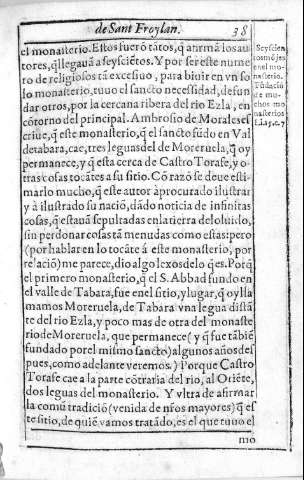 de Sant Froylan. 38
el monasterio. Estos fuerō tātos, q̃ afirmā los au-
tores, q̃ llegauā a seyscietos. Y por ser este nume
ro de religiosos tā excessiuo, para biuir en vn so
lo monasterio, tuuo el sancto necessidad, de fun
dar otros, por la cercana ribera del rio Ezla, en
cōtorno del principal. Ambrosio de Morales es
criue, q̃ este monasterio, q̃ el sancto fūdo en Val
de tabara, cae, tres leguas del de Moreruela, q̃ oy
permanece, y q̃ esta cerca de Castro Torafe, y o-
tras cosas tocātes a su sitio. Cō razō se deue esti-
marlo mucho, q̃ este autor a procurado ilustrar
y à ilustrado su naciō, dādo noticia de infinitas
cosas, q̃ estauā sepultadas en la tierra del oluido,
sin perdonar cosas tā menudas como estas: pero
(por hablar en lo tocāte â este monasterio, por
relaciō) me parece, dio algo lexos delo q̃ es. Porq̃
el primero monasterio, q̃ el S. Abbad fundo en
el valle de Tabara, fue en el sitio, y lugar, q̃ oy lla
mamos Moreruela, de Tabara vna legua distā
te del rio Ezla, y poco mas de otra del monaste
rio de Moreruela, que permanece (y q̃ fue tābiē
fundado por el mismo sancto) algunos años des
pues, como adelante veremos.) Porque Castro
Torafe cae a la parte cōtraria del rio, al Oriēte,
dos leguas del monasterio. Y vltra de afirmar
la comū tradiciō (venida de nr̄os mayores) q̃ es
te sitio, de quiē vamos tratādo, es el que tuuo el
mo
Seyscien
tos mōjes
en el mo-
nasterio.
Fūdaciō
de mu-
chos mo
nasterios
Li. 15. c. 7